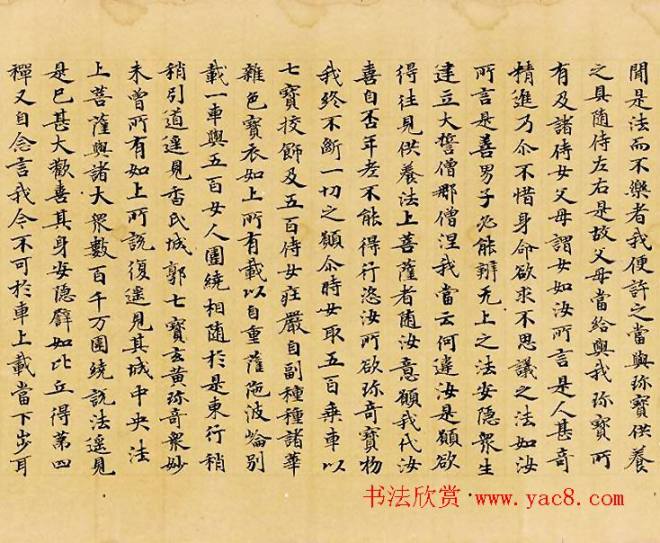 聞是法而不樂者我便許之當與珎寶供養
之具随侍左右是故父母當給與我珎寶所
有及諸侍女父母謂女如汝所言是人甚奇
精進乃尒不惜身命欲求不思議之法如汝
所言是善男子必能辨无上之法安隠衆生
建立大誓僧那僧涅我當云何違汝是願欲
得往見供養法上菩薩者随汝意願我代汝
喜自否年老不能得行恣汝所欲珎奇寶物
我終不断一切之願尒時女取五百乗車以
七寶挍飾及五百侍女庄嚴自副種種諸華
雜色寶衣如上所有載以自重薩陁波崘別
載一車與五百女人圍繞相随於是東行稍
稍引道遥見香氏城郭七寶玄黄珎奇衆妙
未曾所有如上所說復遥見其城中央法
上菩薩與諸大衆數百千万圍繞説法遥見
是已甚大歡喜其身安隠譬如比丘得第四
禪又自念言我今不可於車上載當下步耳
书法欣赏 www.yac8.com